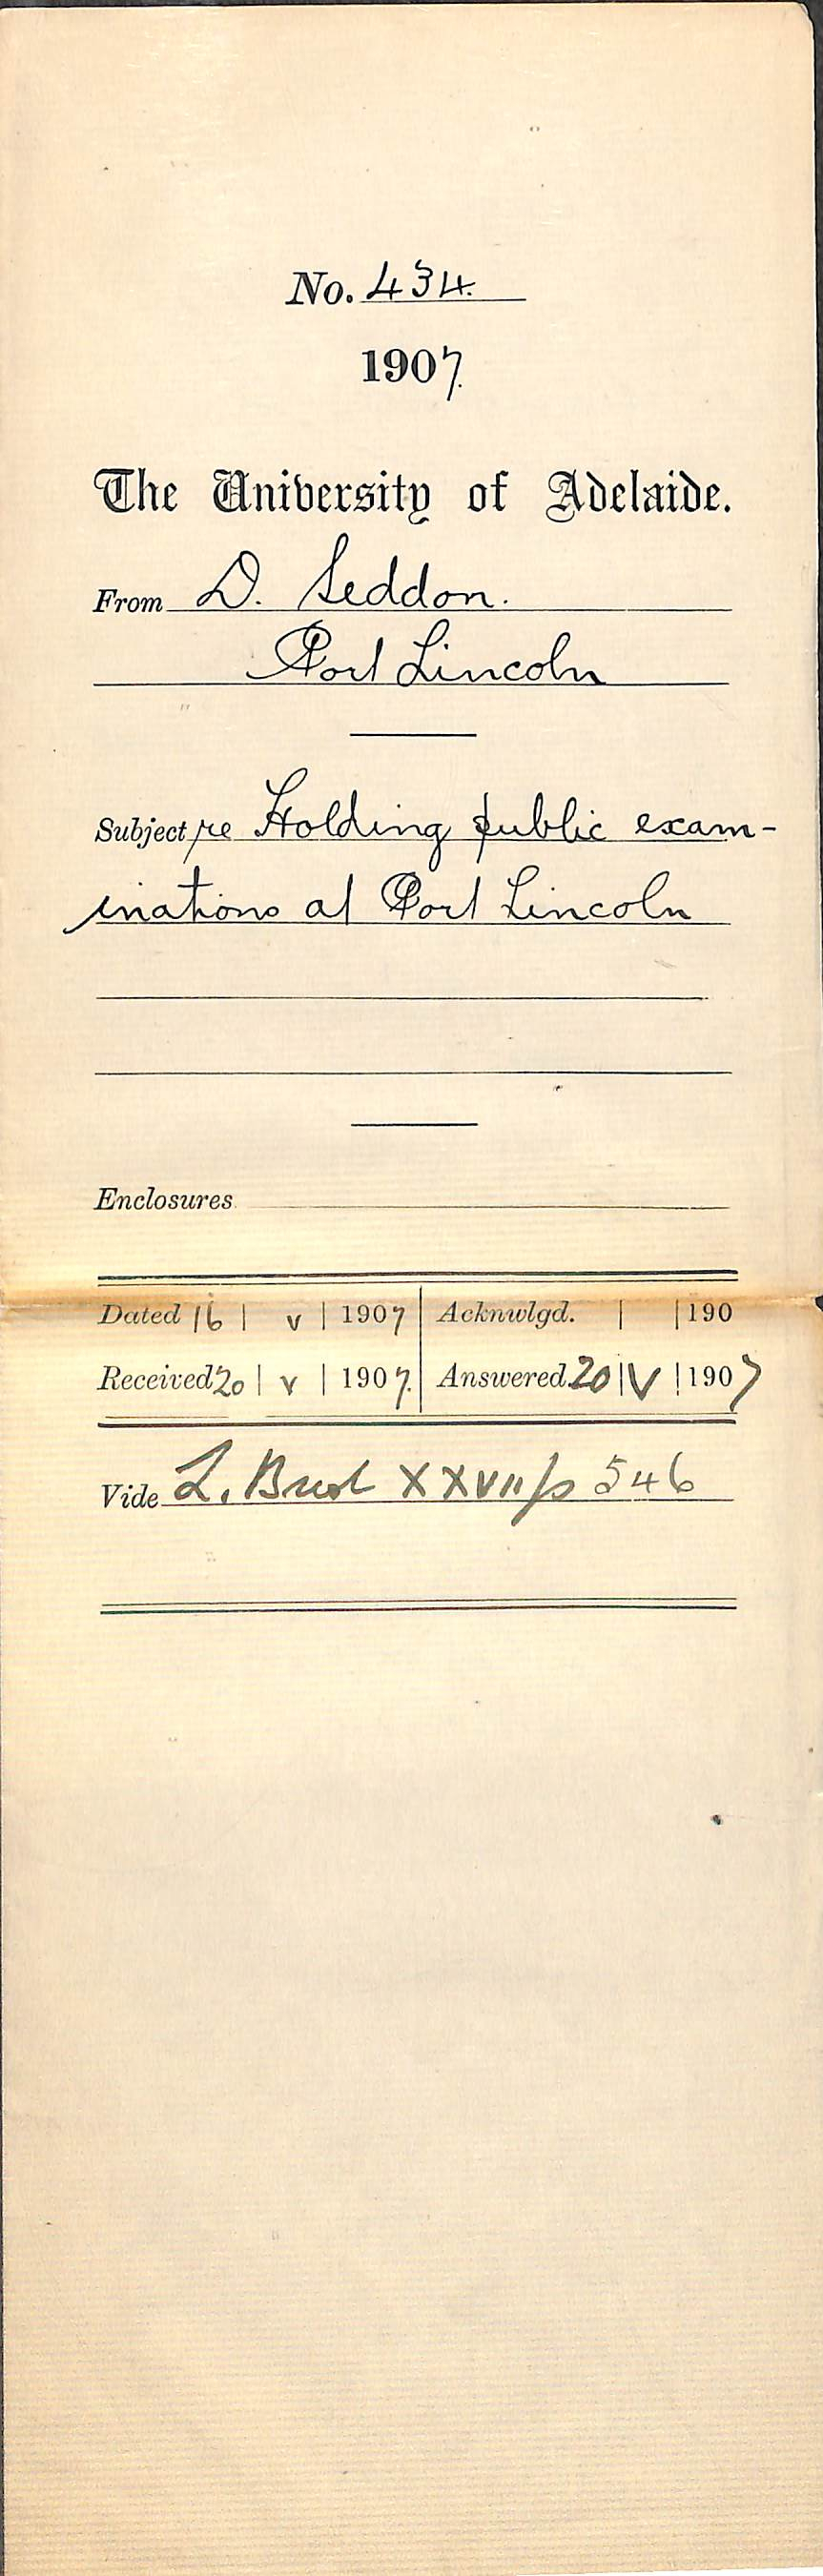 No. 434.
1907.
The University of Adelaide.
From D. Seddon.
Port Lincoln
Subject re Holding public exam-
inations at Port Lincoln
Enclosures
Dated 16 | v | 1907 Acknwlgd. | | 190
Received 20 | v | 1907. Answered 20 | V | 1907
Vide L. XXVII p 546